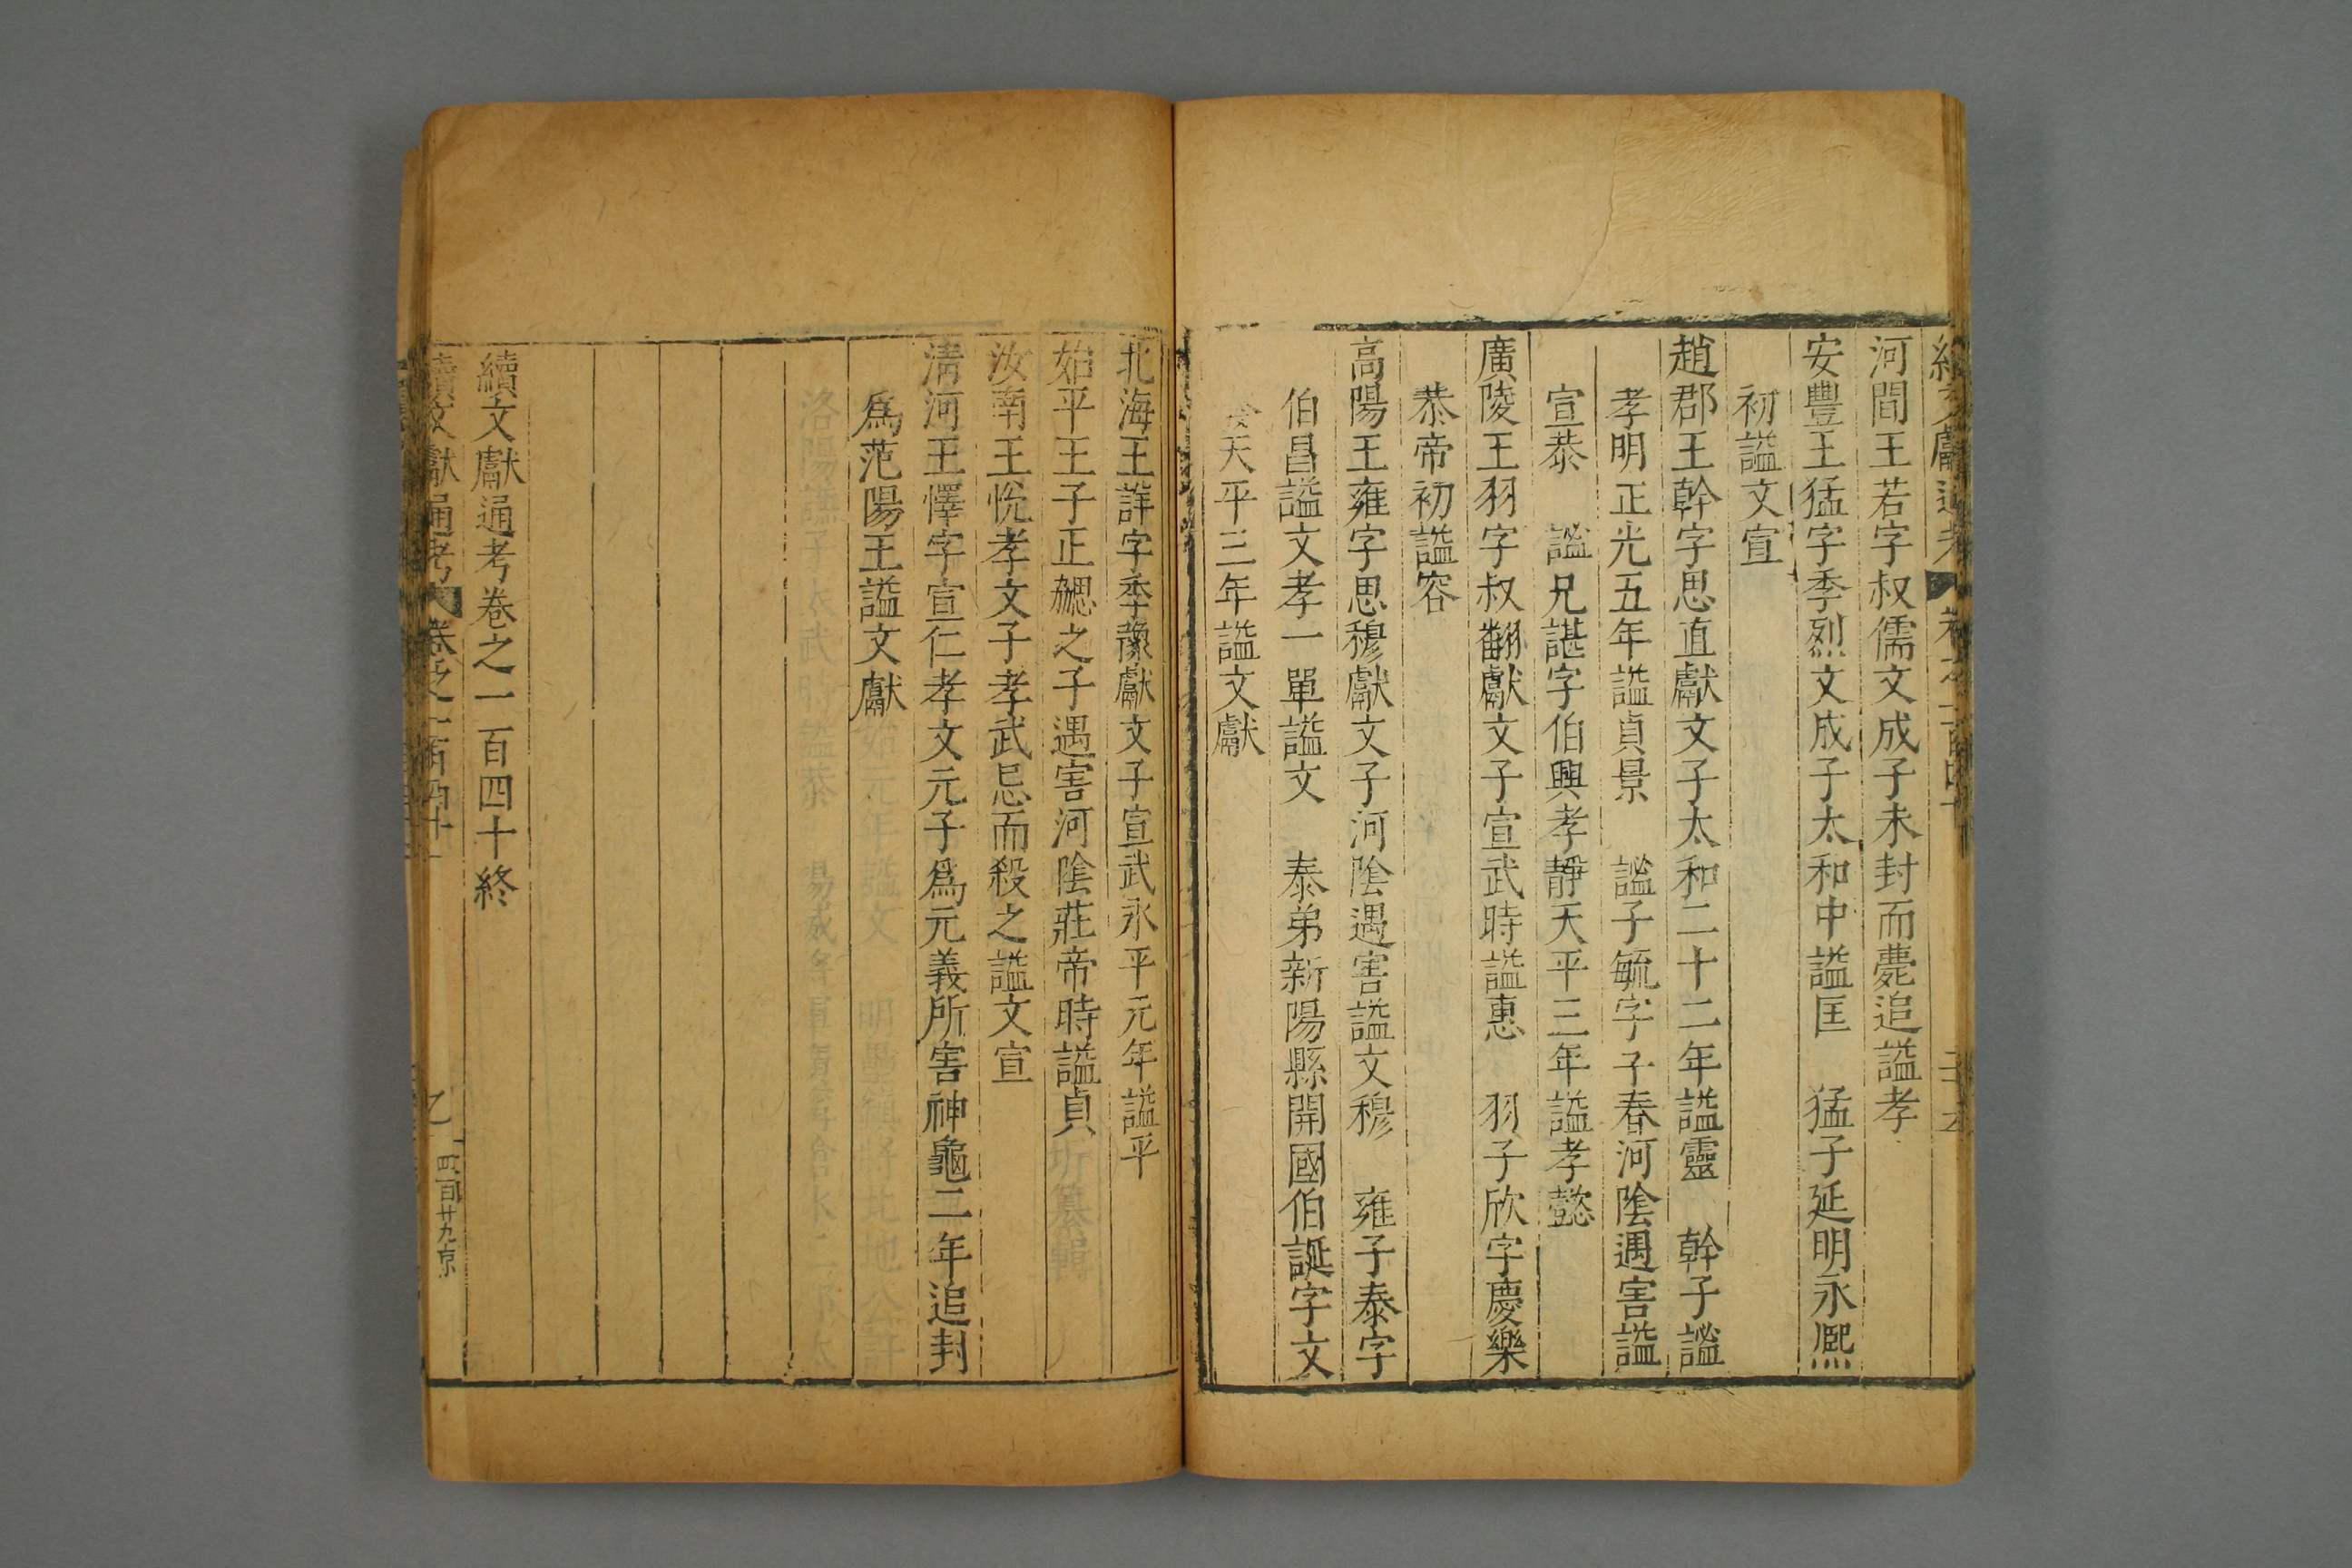 河間王若字叔儒文成子未封而薨追謚孝
安豐王猛字季烈文成子太和中謚匡　猛子延明永熙
初謚文宣
趙郡王幹字思直獻文子太和二十二年謚靈　幹子謐
孝明正光五年謚貞景　謐子毓字子春河陰遇害謚
宣恭　謐兄諶字伯興孝靜天平三年謚孝懿
廣陵王羽字叔翻獻文子宣武時謚惠　羽子欣字慶樂
恭帝初謚容
高陽王雍字思穆獻文子河陰遇害謚文穆　雍子泰字
伯昌謚文孝一單謚文　泰弟新陽縣開國伯誕字文
天平三年謚文獻
北海王詳字季豫獻文子宣武永平元年謚平
始平王子正勰之子遇害河陰莊帝時謚貞
汝南王悅孝文子孝武忌而殺之謚文宣
清河王懌字宣仁孝文元子爲元義所害神龜二年追封
爲范陽王謚文獻
續文獻通考卷之一百四十終
續文獻通考　卷之一百四十
四百廿九京